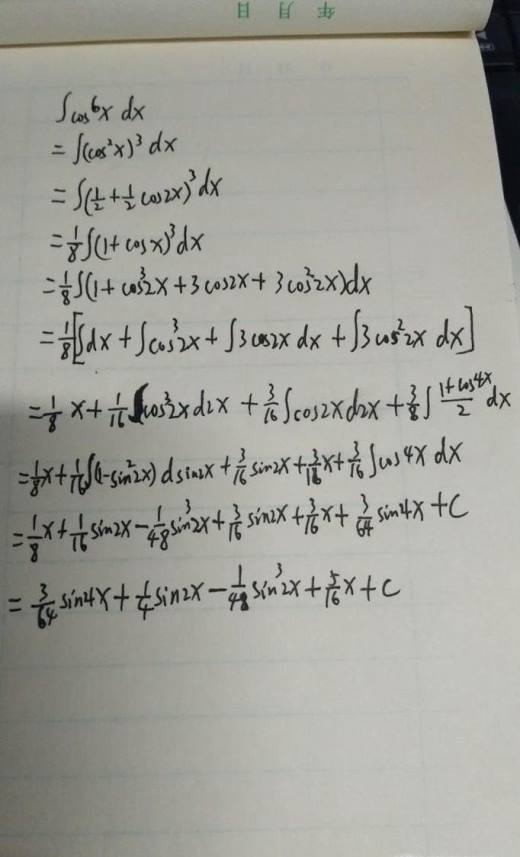 年 月 日
∫cos⁶x dx
= ∫(cos²x)³ dx
= ∫(1/2 + 1/2 cos2x)³ dx
= 1/8 ∫(1 + cosx)³ dx
= 1/8 ∫(1 + cos³2x + 3cos2x + 3cos²2x)dx
= 1/8 [∫dx + ∫cos³2x + ∫3cos2x dx + ∫3cos²2x dx]
= 1/8 x + 1/16 ∫cos³2x d2x + 3/16 ∫cos2x d2x + 3/8 ∫ (1+cos4x)/2 dx
= 1/8 x + 1/16 ∫(1-sin²2x) dsin2x + 3/16 sin2x + 3/16 x + 3/16 ∫cos4x dx
= 1/8 x + 1/16 sin2x - 1/48 sin³2x + 3/16 sin2x + 3/16 x + 3/64 sin4x + C
= 3/64 sin4x + 1/4 sin2x - 1/48 sin³2x + 5/16 x + C